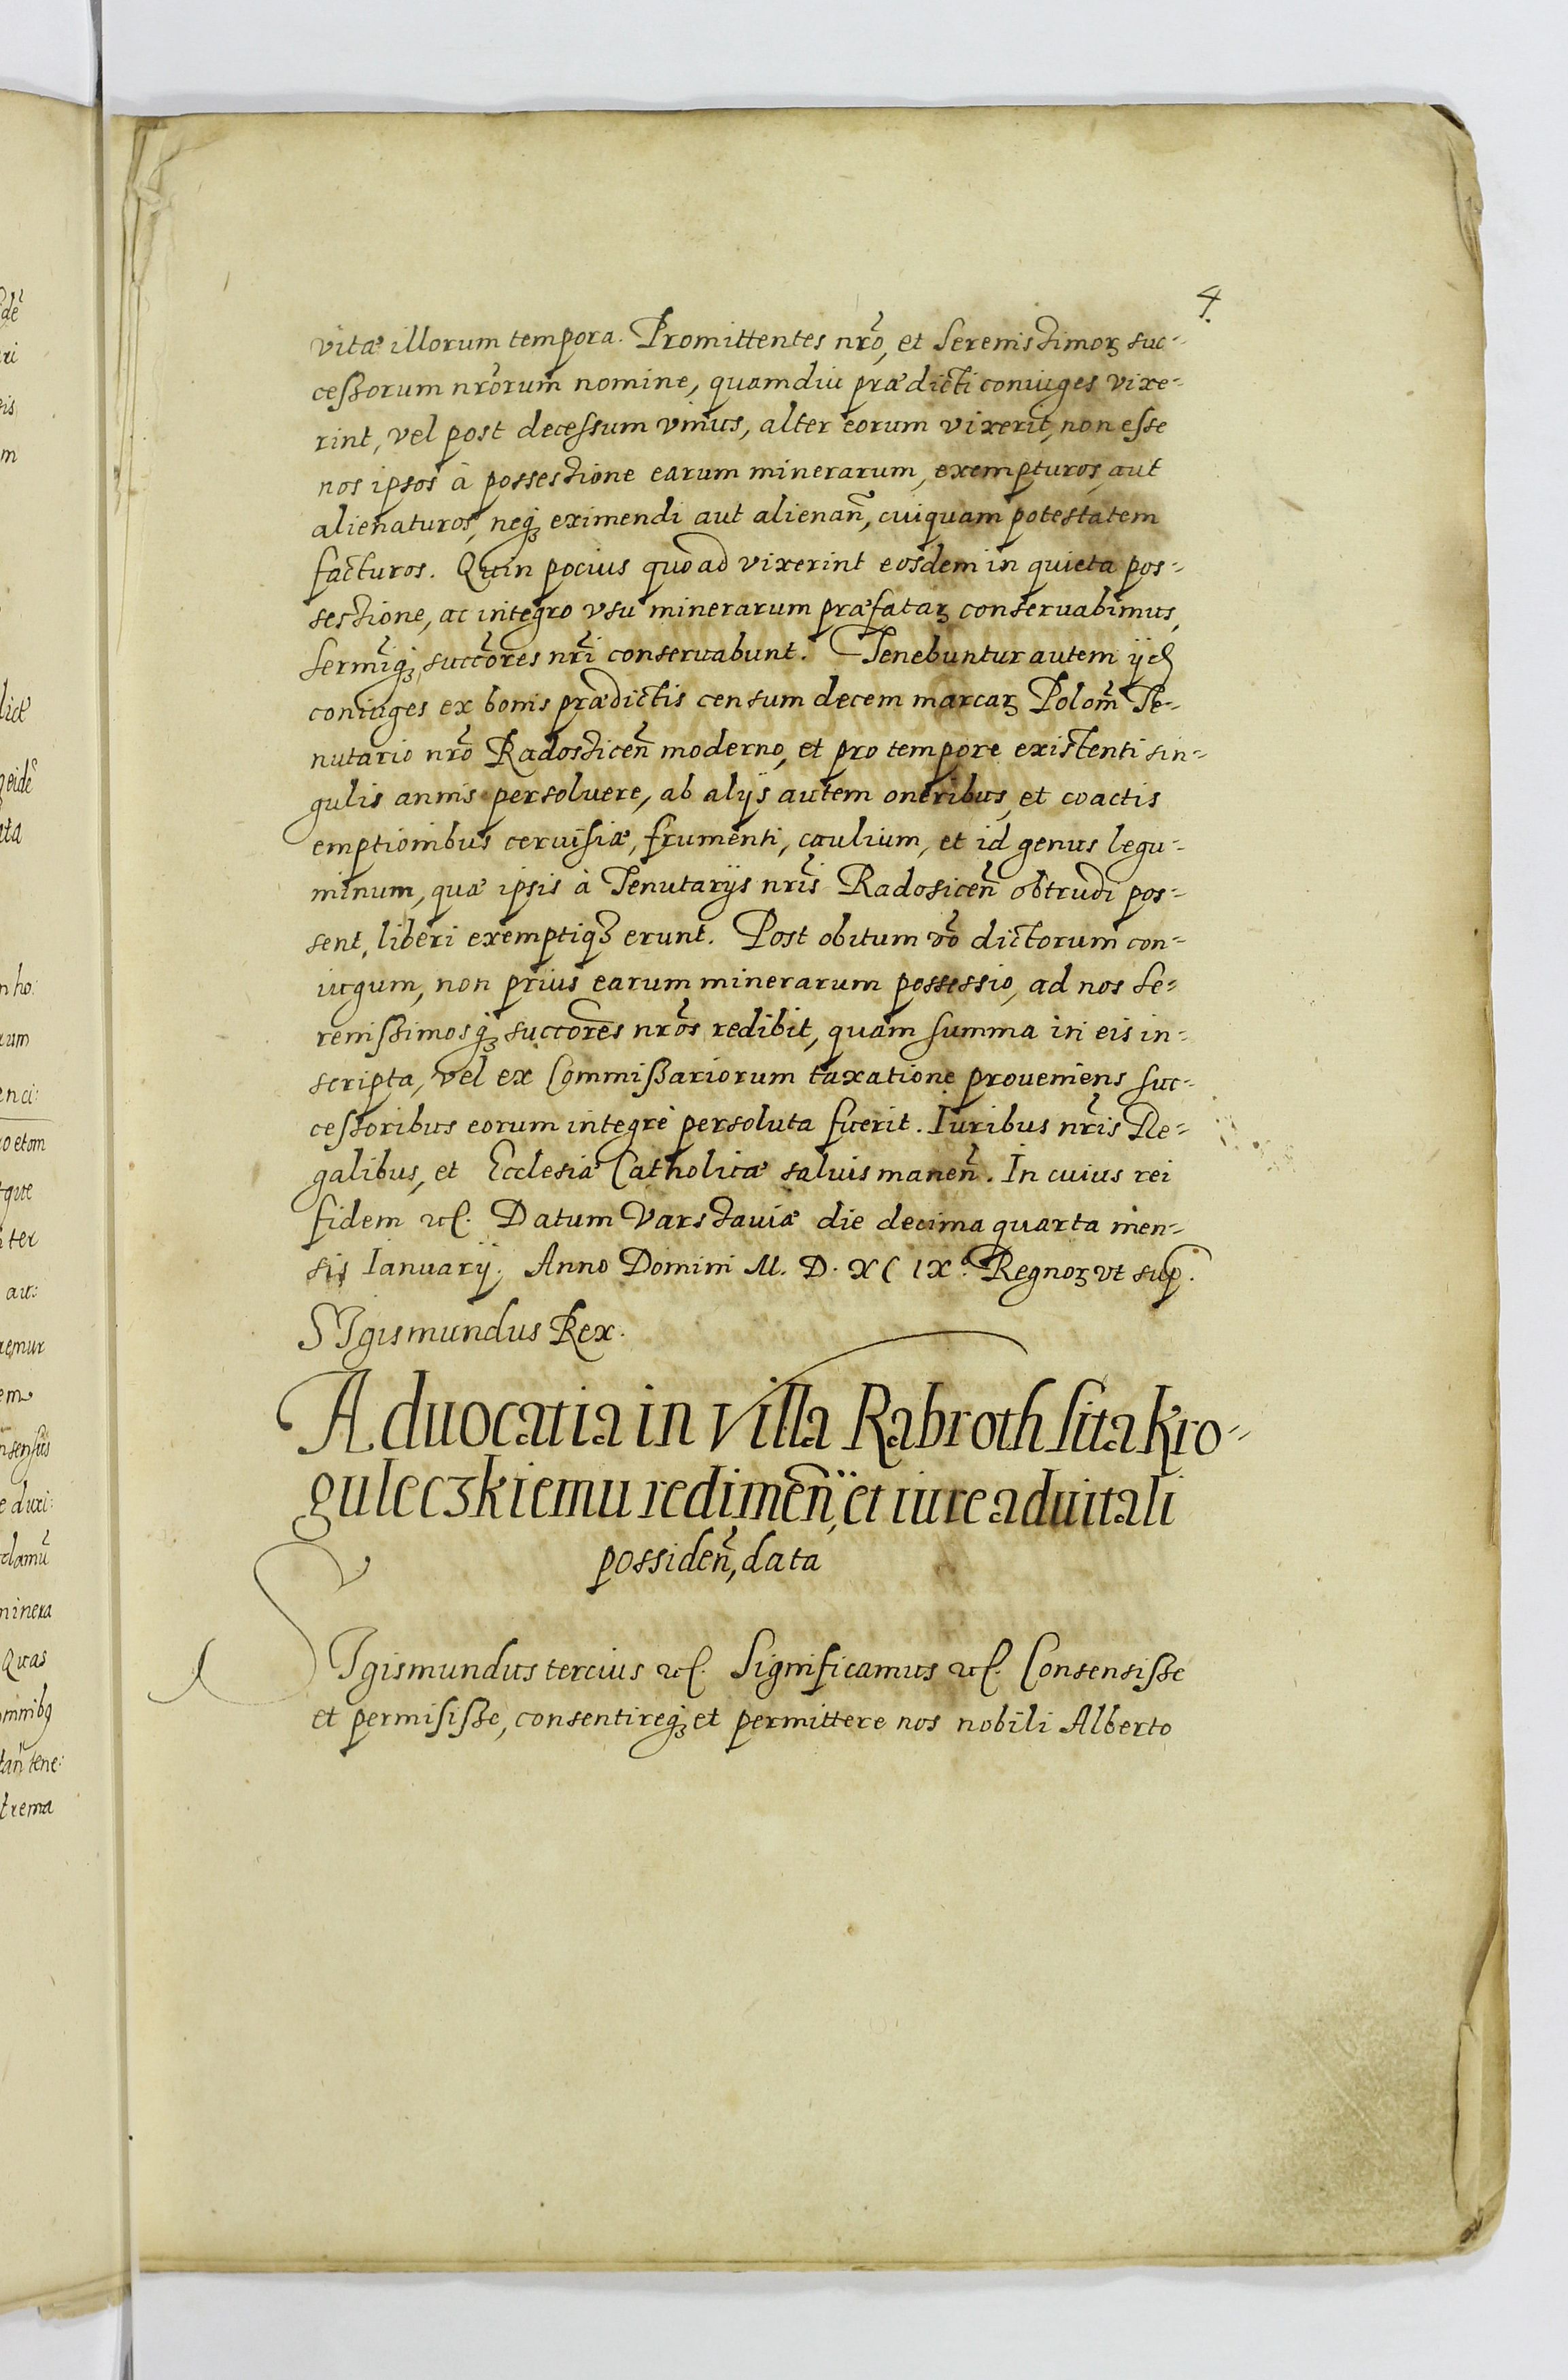 4.
vitæ illorum tempora. Promittentes nr̃o, et Serenissimoꝝ suc-
cessorum nr̃orum nomine, quamdiu prædicti coniuges vixe-
rint, vel post decessum vnius, alter eorum vixerit, non esse
nos ipsos à possessione earum minerarum, exempturos, aut
alienaturos, neqꝫ eximendi aut alienañ, cuiquam potestatem
facturos. Quin pocius quoad vixerint eosdem in quieta pos-
sessione, ac integro vsu minerarum præfataꝝ conseruabimus,
Sermĩqꝫ succ̃ores nr̃i conseruabunt. Tenebuntur autem ijd
coniuges ex bonis prædictis censum decem marcaꝝ Polom̃ Te-
nutario nr̃o Radossiceñ moderno, et pro tempore existenti sin-
gulis annis persoluere, ab alijs autem oneribus, et coactis
emptionibus ceruisiæ, frumenti, caulium, et id genus legu-
minum, quæ ipsis à Tenutarijs nr̃is Radosiceñ obtrudi pos-
sent, liberi exemptiqꝫ erunt. Post obitum võ dictorum con-
iugum, non prius earum minerarum possessio, ad nos Se-
renissimosqꝫ succores nr̃os redibit, quam summa in eis in-
scripta, vel ex Commissariorum taxatione proueniens suc-
cessoribus eorum integrè persoluta fuerit. Iuribus nr̃is Re-
galibus, et Ecclesiæ Catholicæ saluis maneñ. In cuius rei
fidem ꝛcꝭ. Datum Varssauiæ die decima quarta men-
sis Ianuarij. Anno Domini M. D. XC IX°. Regnoꝝ vt sup.
SIgismundus Rex.
Aduocatia in villa Rabroth sita Kro-
guleczkiemu redimeñ, et iure aduitali
possideñ, data
SIgismundus tercius ꝛcꝭ. Significamus ꝛcꝭ. Consensisse
et permisisse, consentireqꝫ et permittere nos nobili Alberto